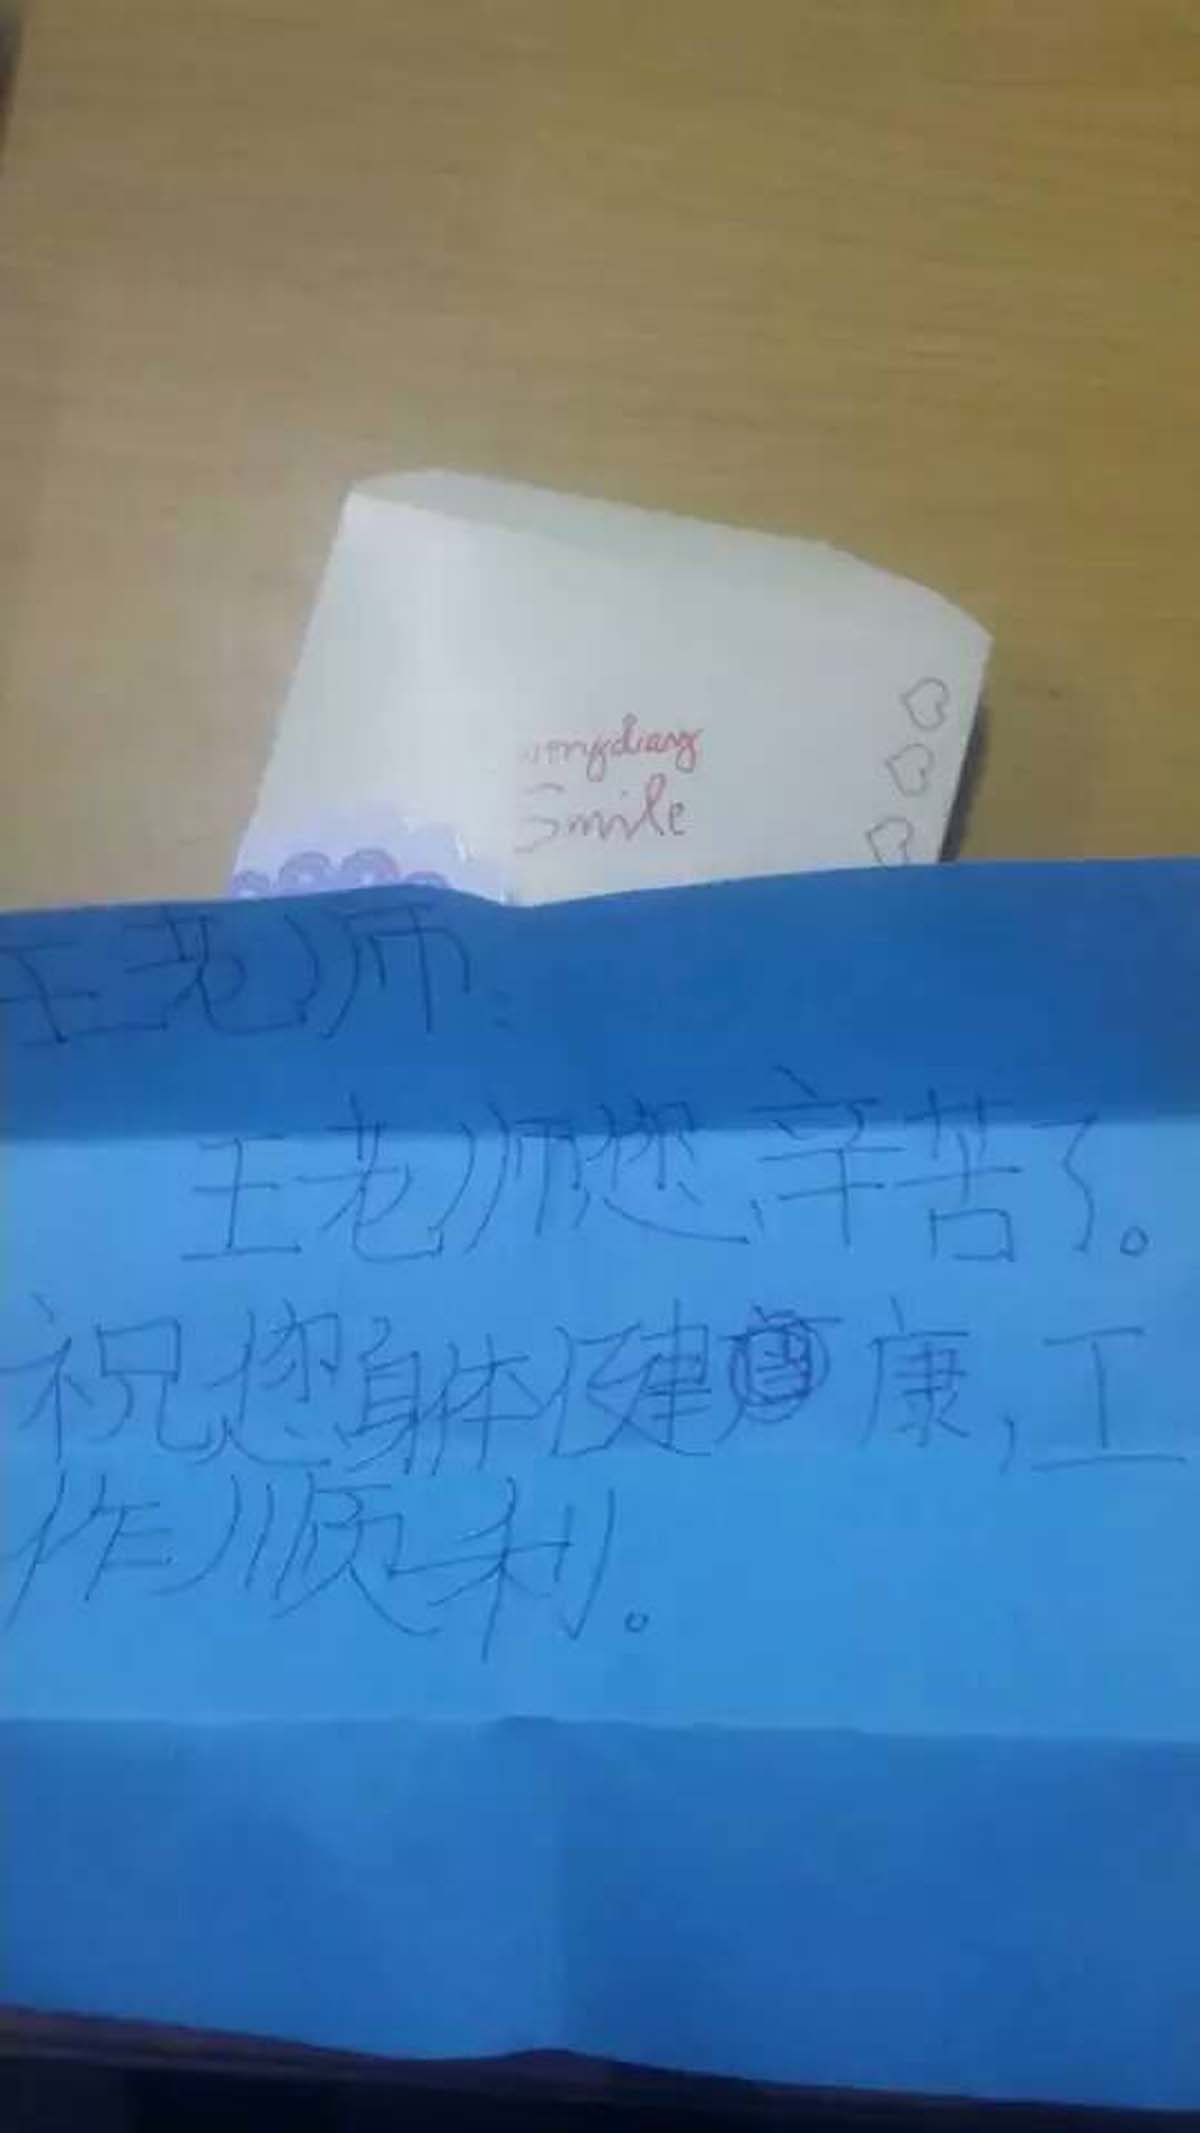 Smile
王老师:
王老师您辛苦了。
祝您身体健康,工
作顺利。